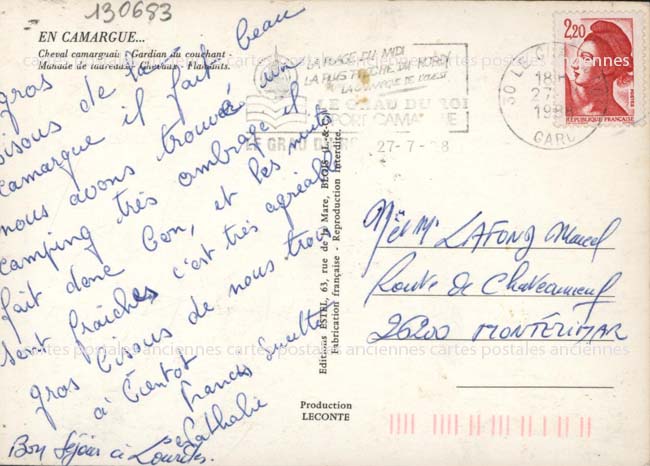 130683
EN CAMARGUE...
Cheval camarguais - Gardian du couchant -
Manade de taureaux - Chevaux - Flamants.
gros
bisous de la
camargue il fait beau
nous avons trouvé un
camping très ombragé il
fait donc bon, et les nuits
sent fraîches c'est très agréable
gros bisous de nous trois
à bientôt
Francis Ginette
Nathalie
Bon Séjour à Lourdes.
LA PLAGE DU MIDI
LA PLUS PROCHE DU NORD,
LA CAMARGUE DE L'OUEST
LE GRAU DU ROI
PORT CAMARGUE
LE GRAU DU ROI
27-7-88
30 LE GRAU DU
18H
27-
1988
GARD
2,20
POSTES
RÉPUBLIQUE FRANÇAISE
Editions ESTEL, 63, rue de la Mare, BLOIS (L.-&-C.)
Fabrication française - Reproduction Interdite.
M et Me LAFOND Marcel
Route de Chateauneuf
26200 MONTÉLIMAR
Production
LECONTE
cartes postales anciennes cartes postales anciennes cartes postales anciennes
cartes postales anciennes cartes postales anciennes cartes postales anciennes